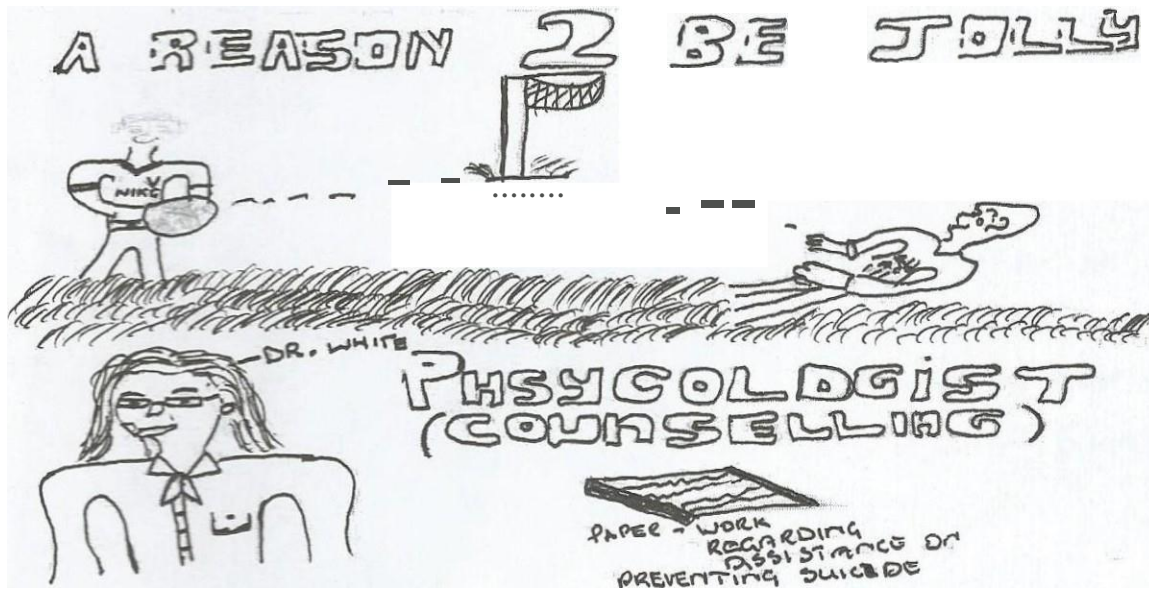 A REASON 2 BE JOLLY
NIKE
DR. WHITE
PHSYCOLOGIST
(COUNSELLING)
PAPER - WORK
REGARDING
ASSISTANCE ON
PREVENTING SUICIDE